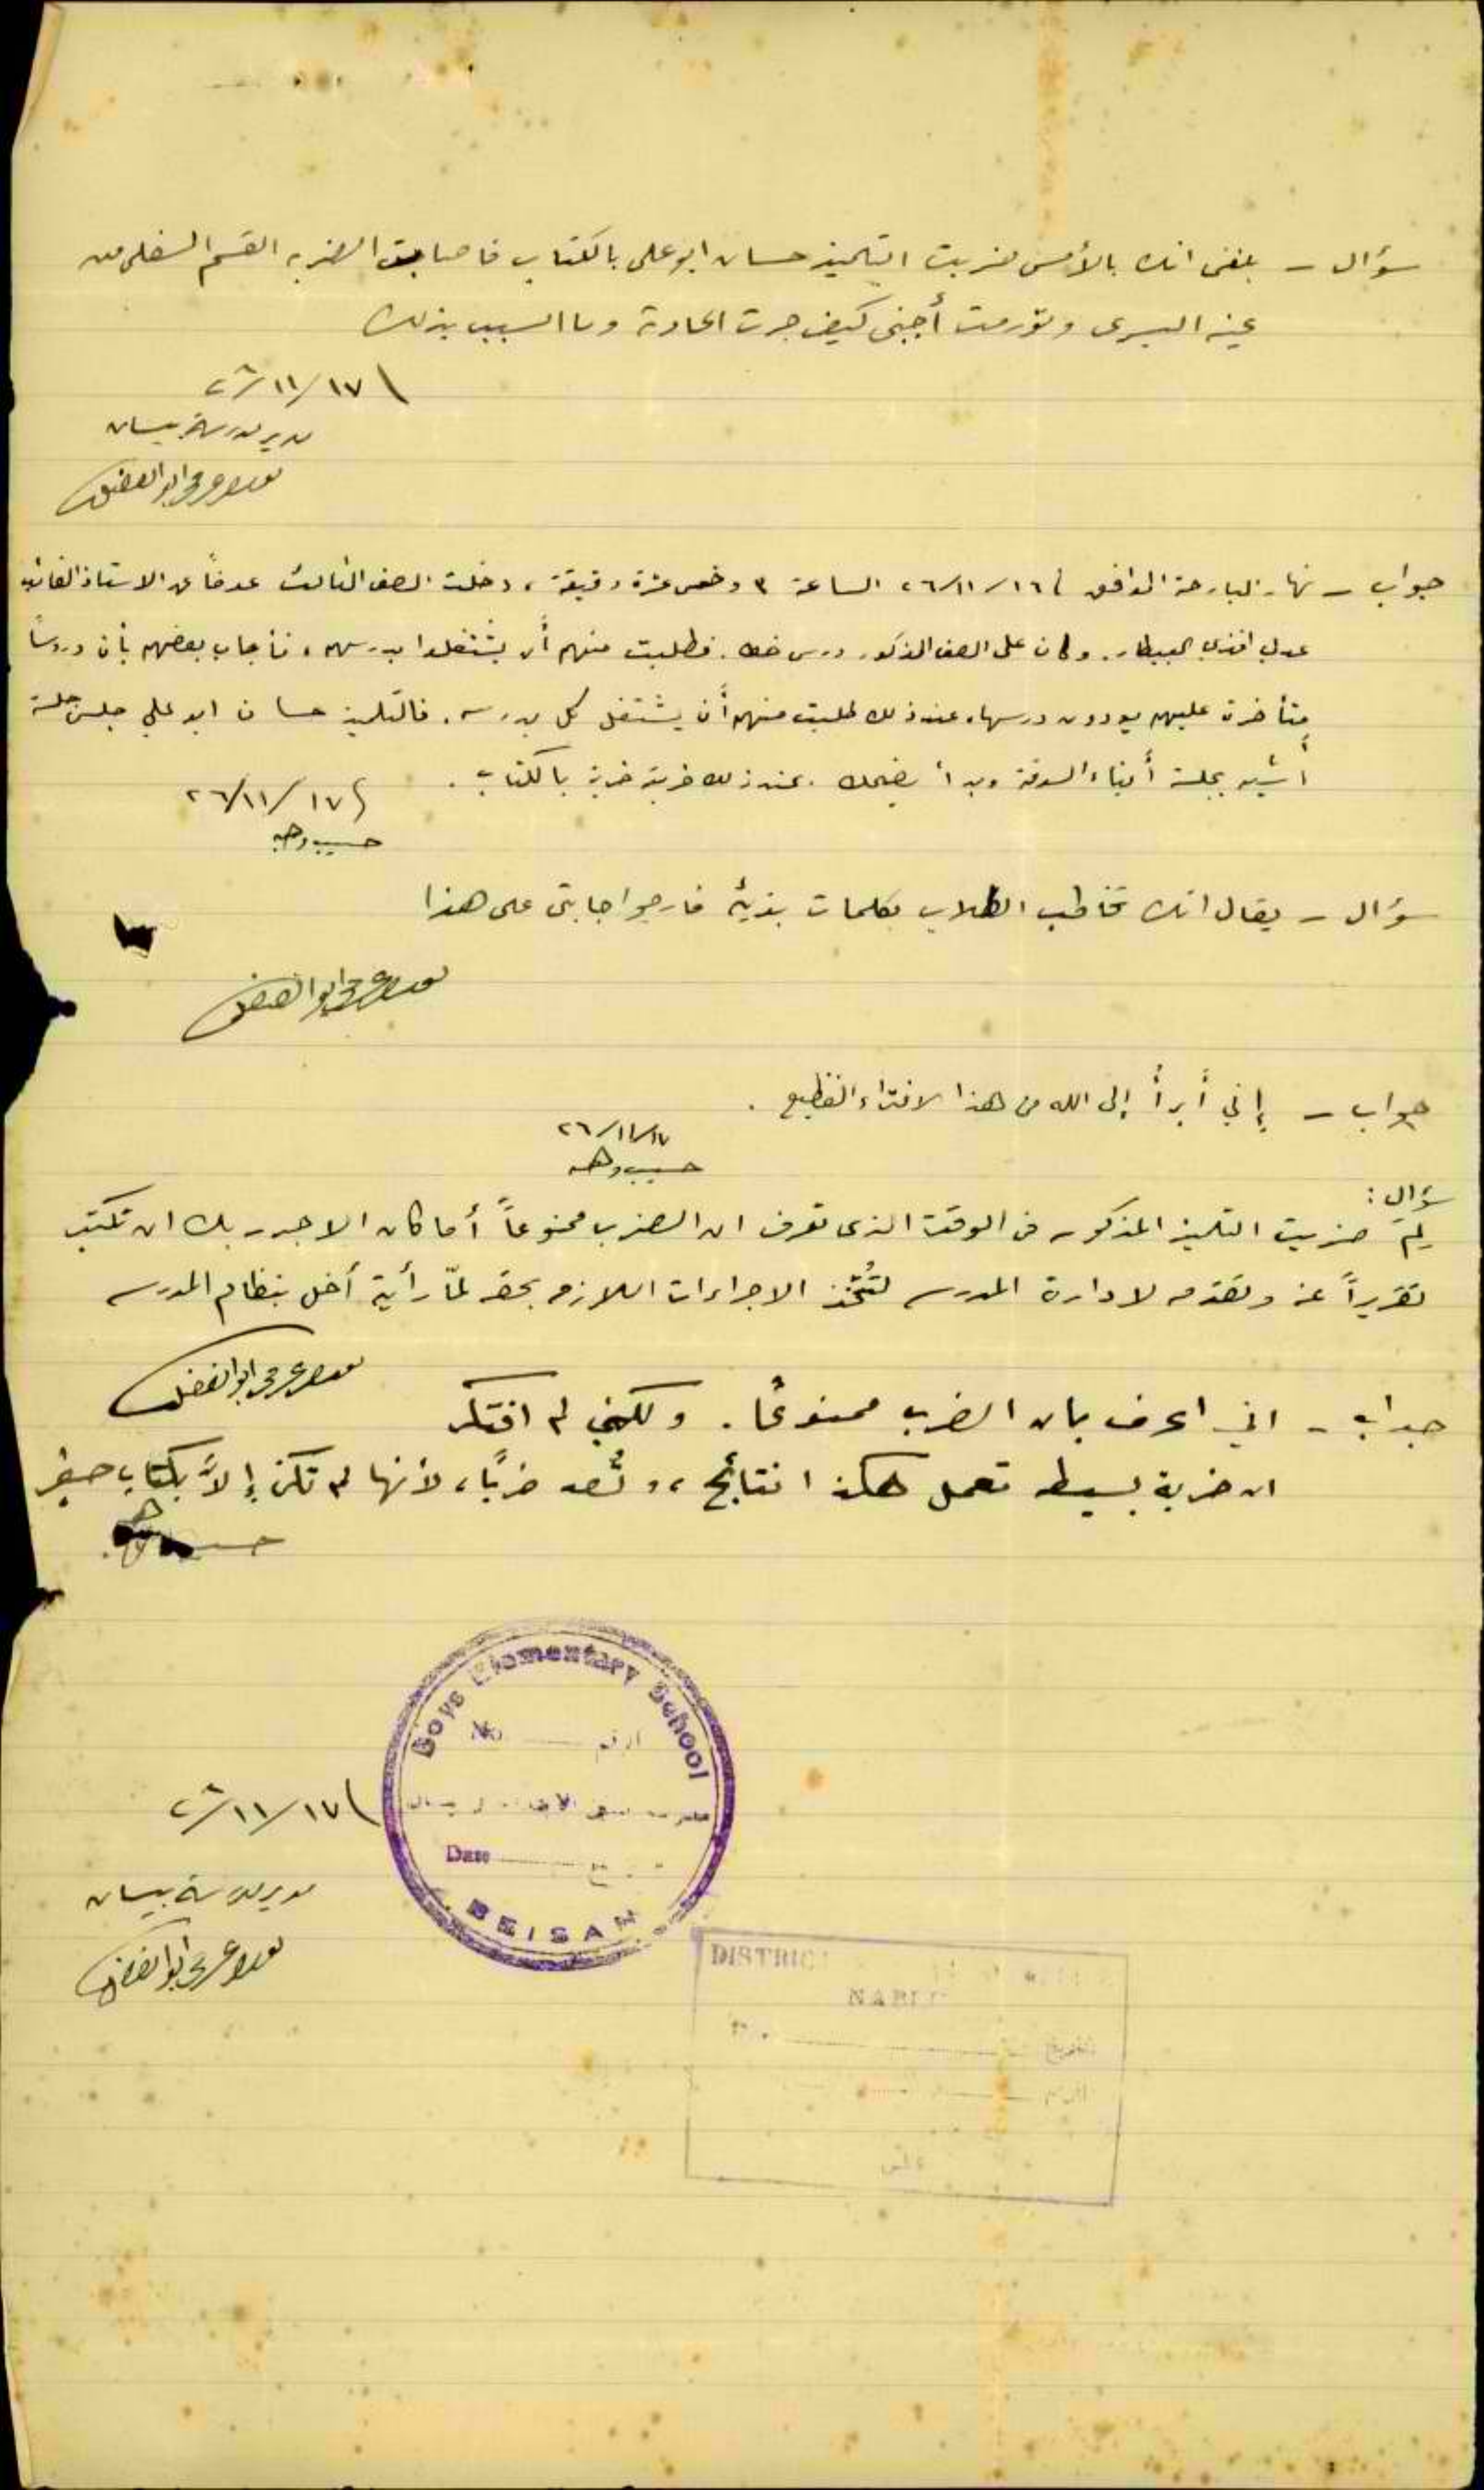 سؤال - بلغني انك بالأمس ضربت التلميذ حسان ابو علي بالكتاب فاصابت الضربه القسم السفلي من
عينه اليسرى وتورمت أجبني كيف جرت الحادثة وما السبب بذلك
١٧/١١/٢٦
مدير مدرسة بيسان
ابو الفضل
جواب - نهار البارحة الموافق ١٦/١١/٢٦ الساعة ٣ وخمس عشرة دقيقة، دخلت الصف الثالث عوضاً عن الاستاذ الغائب
عدلي افندي البيطار. وكان على الصف المذكور درس خط. فطلبت منهم أن يشتغلوا بدرسهم، فأجاب بعضهم بأن دروساً
متأخرة عليهم يودون درسها. عند ذلك طلبت منهم أن يشتغل كل بدرسه. فالتلميذ حسان ابو علي جلس جلسة
أشبه بجلسة أبناء السوقة وبدأ يضحك. عند ذلك ضربته ضربة بالكتاب.
١٧/١١/٢٦
حسيب وهبه
سؤال - يقال انك تخاطب الطلاب بكلمات بذيئه فارجو اجابتي على هذا
ابو الفضل
جواب - إني أبرأ إلى الله من هذا الافتراء الفظيع.
١٧/١١/٢٦
حسيب وهبه
سؤال:
لِمَ ضربت التلميذ المذكور في الوقت الذي تعرف ان الضرب ممنوعاً أما كان الاجدر بك ان تكتب
تقريراً عنه وتقدمه لادارة المدرسه لتُتّخذ الاجراءات اللازمه بحقه لمّا رأيته أخل بنظام المدرسه
ابو الفضل
جواب - اني اعرف بان الضرب ممنوعًا. ولكني لم افتكر
ان ضربة بسيطه تعمل هكذا نتائج، وتُعد ضربًا، لأنها لم تكن إلاَّ بكتاب صغير
حسيب وهبه
Boys Elementary School
No الرقم
Date
BEISAN
١٧/١١/٢٦
مدير مدرسة بيسان
ابو الفضل
DISTRIC
NABL
التاريخ
الرقم